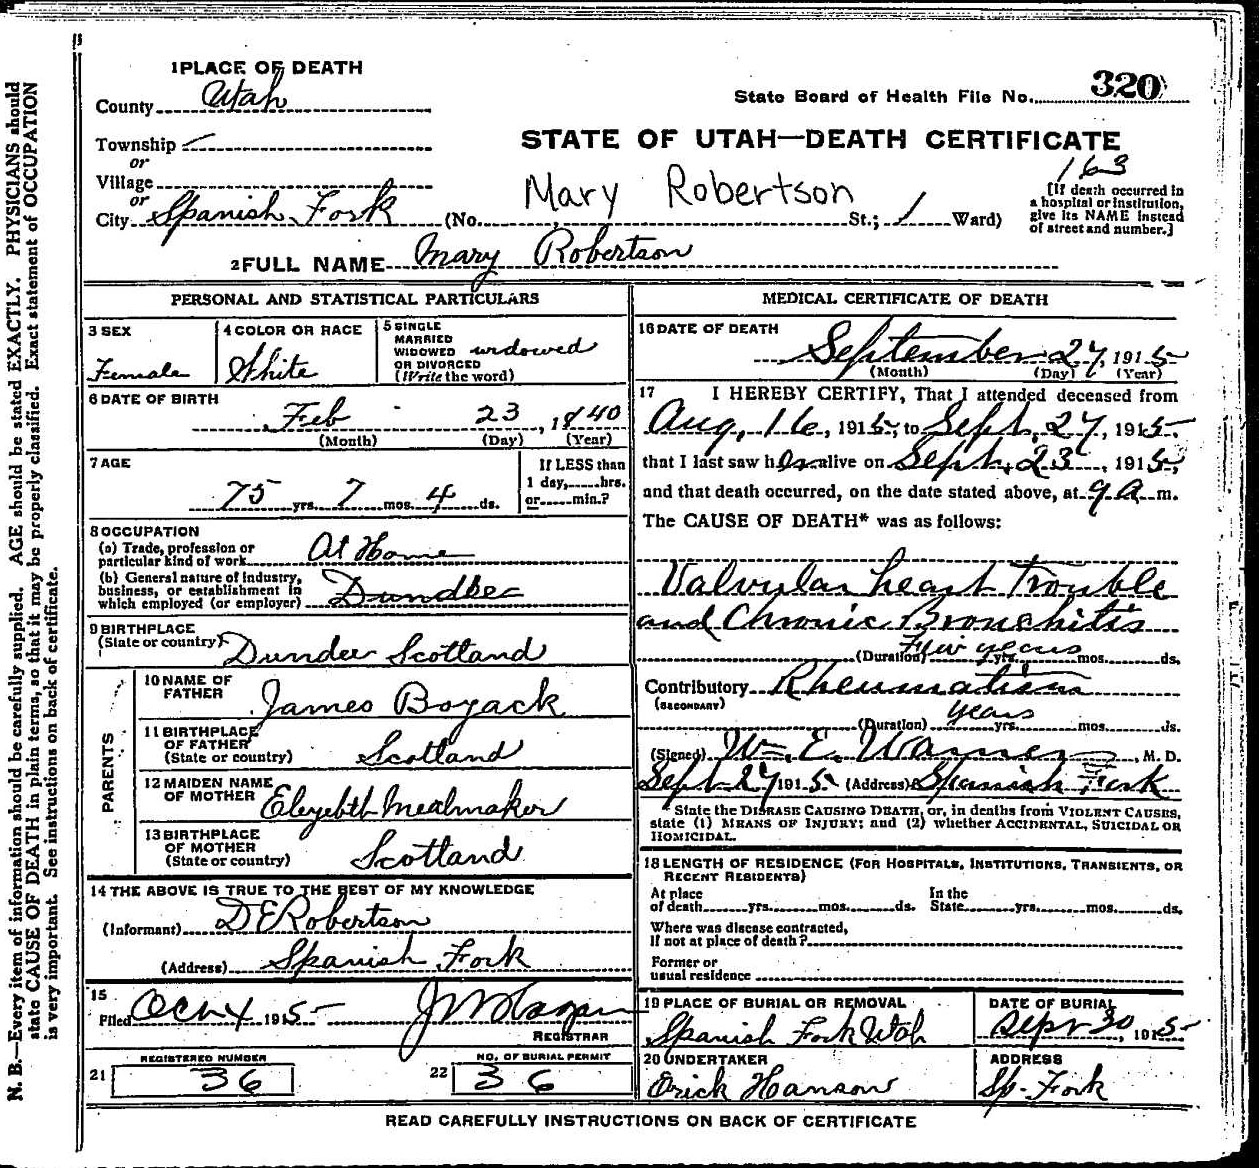 1 PLACE OF DEATH
County Utah
State Board of Health File No. 320
Township
or
Village
or
City Spanish Fork (No. St.; 1 Ward)
STATE OF UTAH—DEATH CERTIFICATE
163
Mary Robertson
[If death occurred in
a hospital or institution,
give its NAME instead
of street and number.]
2 FULL NAME Mary Robertson
PERSONAL AND STATISTICAL PARTICULARS
3 SEX
Female
4 COLOR OR RACE
White
5 SINGLE
MARRIED
WIDOWED widowed
OR DIVORCED
(Write the word)
6 DATE OF BIRTH
Feb 23, 1840
(Month) (Day) (Year)
7 AGE
75 yrs. 7 mos. 4 ds.
If LESS than
1 day,.....hrs.
or.....min.?
8 OCCUPATION
(a) Trade, profession or
particular kind of work At Home
(b) General nature of industry,
business, or establishment in
which employed (or employer) Dundee
9 BIRTHPLACE
(State or country) Dundee Scotland
PARENTS
10 NAME OF
FATHER James Boyack
11 BIRTHPLACE
OF FATHER
(State or country) Scotland
12 MAIDEN NAME
OF MOTHER Elezebth Mealmaker
13 BIRTHPLACE
OF MOTHER
(State or country) Scotland
14 THE ABOVE IS TRUE TO THE BEST OF MY KNOWLEDGE
(Informant) D E Robertson
(Address) Spanish Fork
15
Filed Oct 4 1915
REGISTRAR
REGISTERED NUMBER
21 36
NO. OF BURIAL PERMIT
22 36
MEDICAL CERTIFICATE OF DEATH
16 DATE OF DEATH
September 27, 1915
(Month) (Day) (Year)
17 I HEREBY CERTIFY, That I attended deceased from
Aug, 16, 1915, to Sept, 27, 1915.
that I last saw her alive on Sept, 23, 1915,
and that death occurred, on the date stated above, at 9 a m.
The CAUSE OF DEATH* was as follows:
Valvular heart Trouble
and Chronic Bronchitis
Few years
(Duration) yrs. mos. ds.
Contributory Rheumatism
(SECONDARY)
years
(Duration) yrs. mos. ds.
(Signed) Wm. E. Warner, M. D.
Sept 27 1915 (Address) Spanish Fork
* State the DISEASE CAUSING DEATH, or, in deaths from VIOLENT CAUSES,
state (1) MEANS OF INJURY; and (2) whether ACCIDENTAL, SUICIDAL OR
HOMICIDAL.
18 LENGTH OF RESIDENCE (FOR HOSPITALS, INSTITUTIONS, TRANSIENTS, OR
RECENT RESIDENTS)
At place
of death yrs. mos. ds.
In the
State yrs. mos. ds.
Where was disease contracted,
If not at place of death?
Former or
usual residence
19 PLACE OF BURIAL OR REMOVAL
Spanish Fork Utah
DATE OF BURIAL
Sept 30, 1915
20 UNDERTAKER
Erick Hanson
ADDRESS
Sp. Fork
READ CAREFULLY INSTRUCTIONS ON BACK OF CERTIFICATE
N. B.—Every item of information should be carefully supplied. AGE should be stated EXACTLY. PHYSICIANS should
state CAUSE OF DEATH in plain terms, so that it may be properly classified. Exact statement of OCCUPATION
is very important. See instructions on back of certificate.